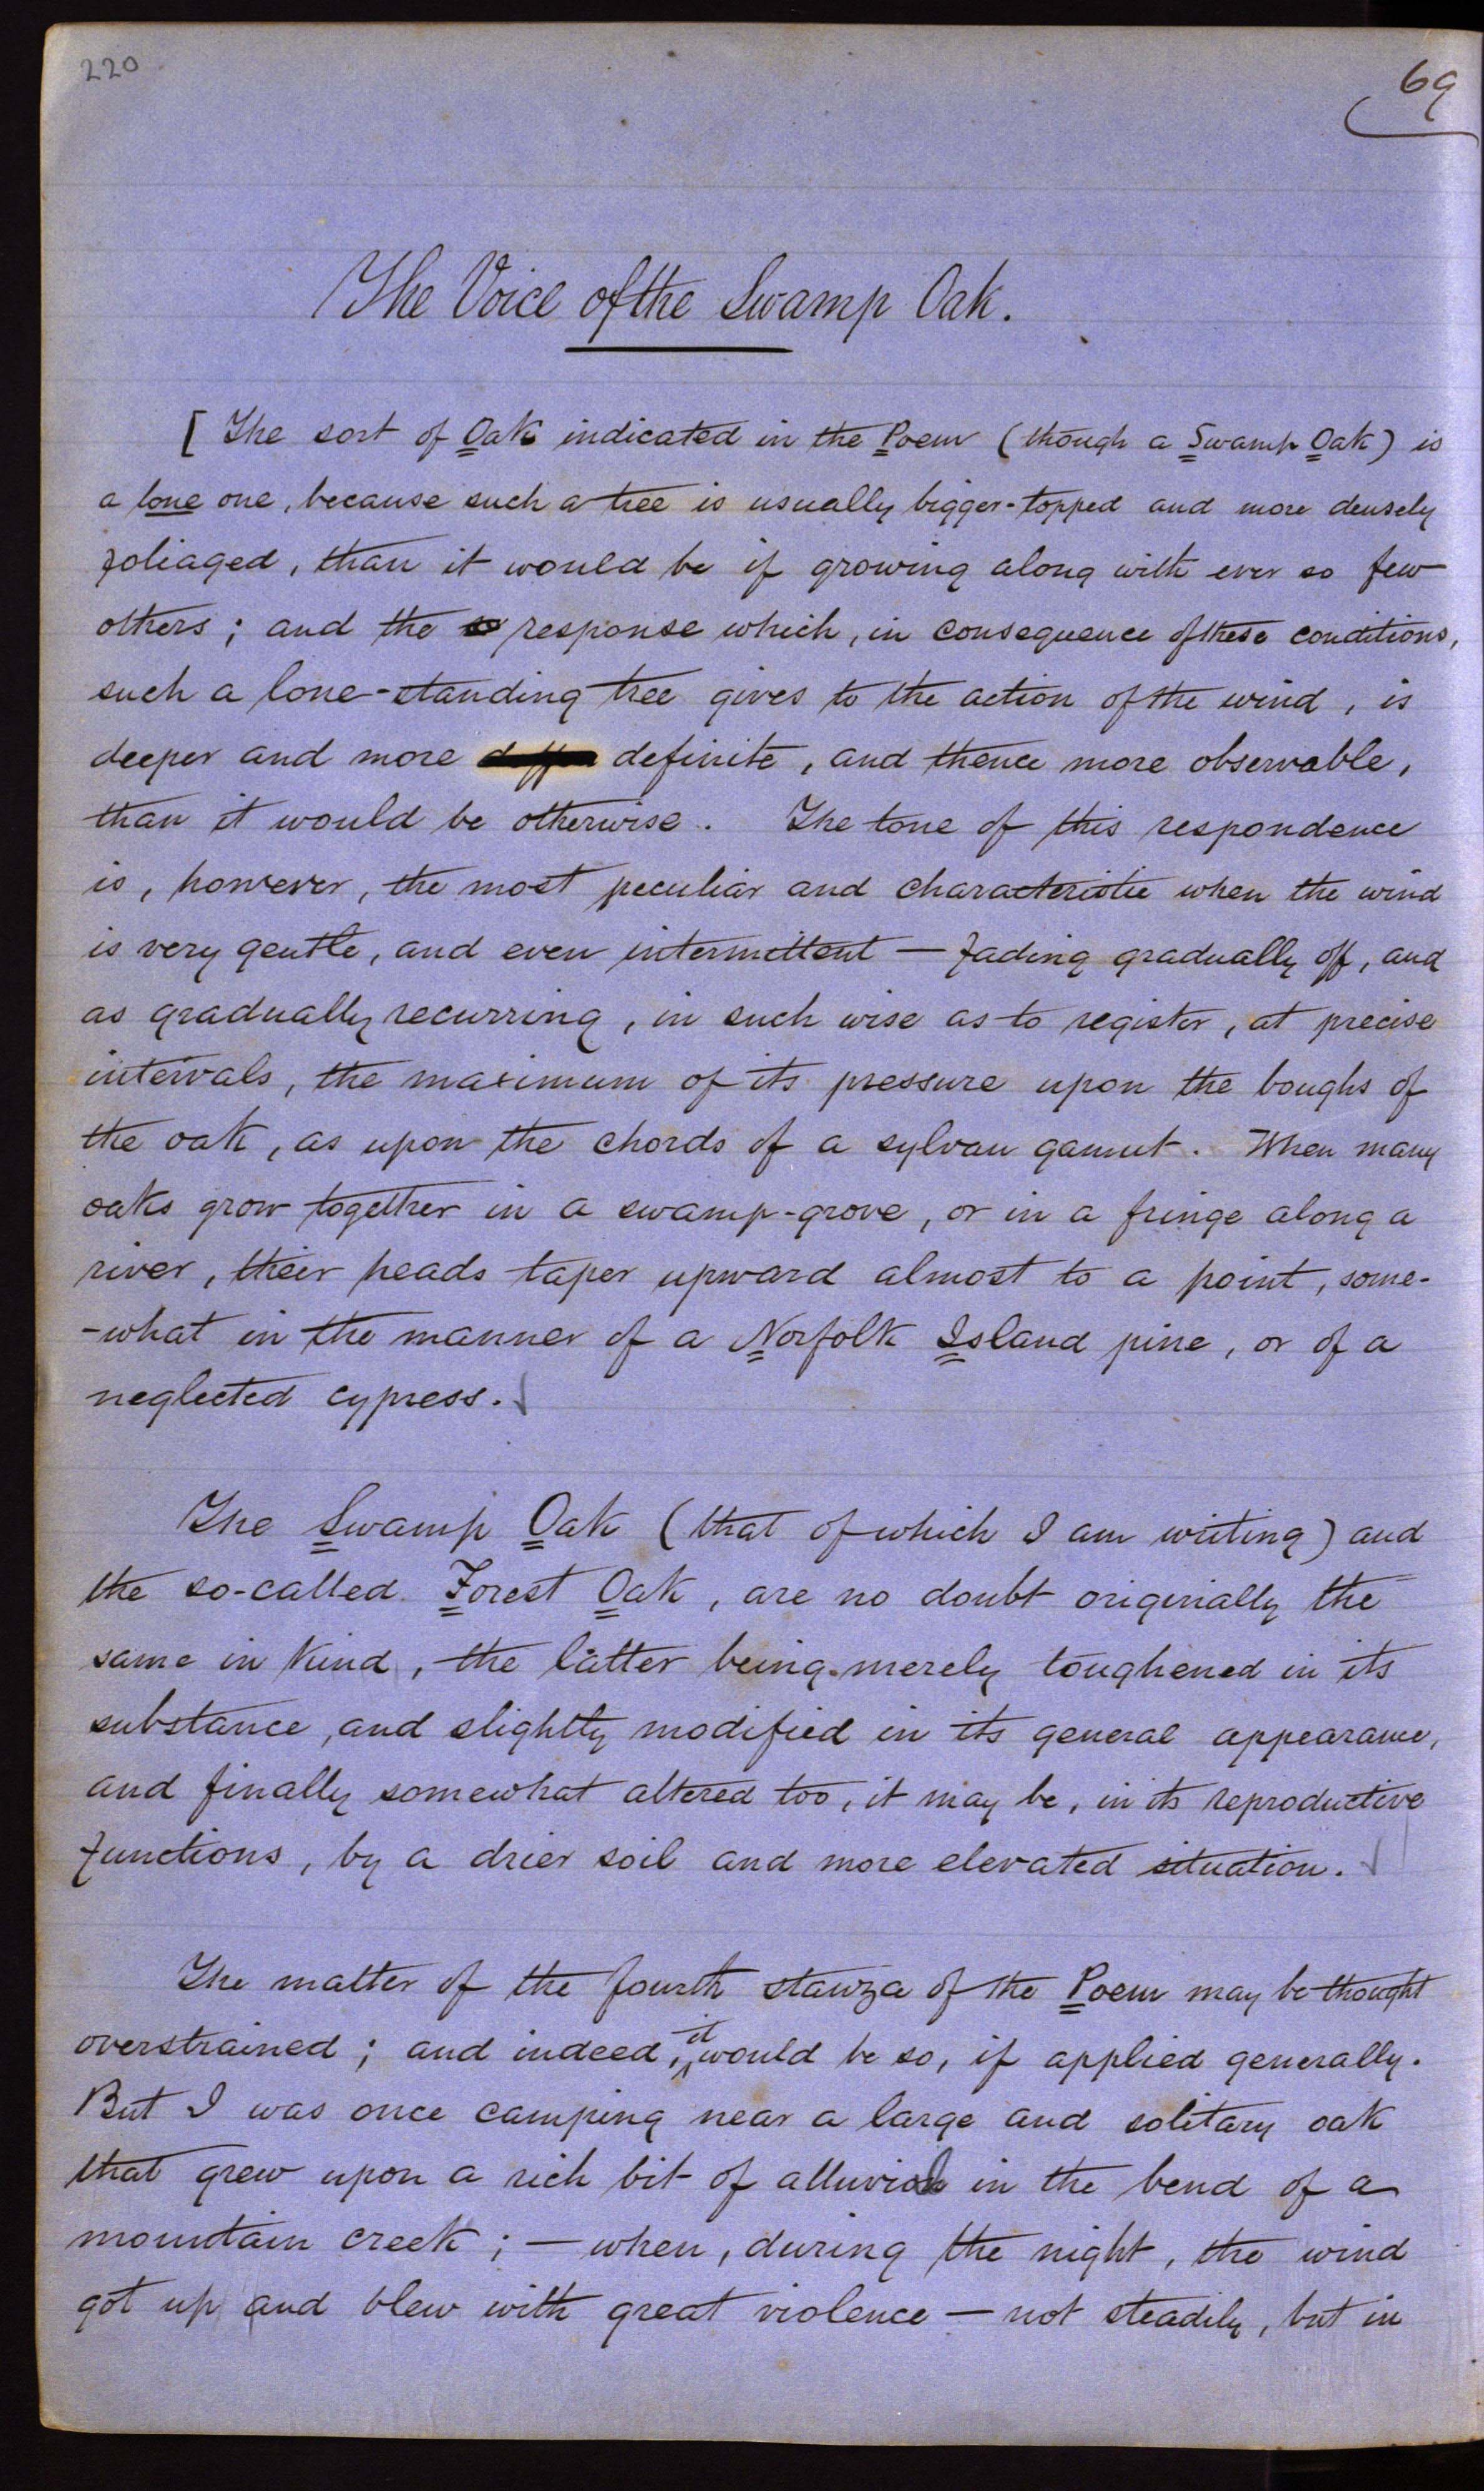 220
69
The Voice of the Swamp Oak.
[ The sort of Oak indicated in the Poem (though a Swamp Oak) is
a lone one, because such a tree is usually bigger-topped and more densely
foliaged, than it would be if growing along with ever so few
others; and the response which, in consequence of these conditions,
such a lone-standing tree gives to the action of the wind, is
deeper and more definite, and thence more observable,
than it would be otherwise. The tone of this respondence
is, however, the most peculiar and characteristic when the wind
is very gentle, and even intermittent — fading gradually off, and
as gradually recurring, in such wise as to register, at precise
intervals, the maximum of its pressure upon the boughs of
the oak, as upon the chords of a sylvan gamut. When many
oaks grow together in a swamp-grove, or in a fringe along a
river, their heads taper upward almost to a point, some-
-what in the manner of a Norfolk Island pine, or of a
neglected cypress.
The Swamp Oak (that of which I am writing) and
the so-called Forest Oak, are no doubt originally the
same in kind, the latter being merely toughened in its
substance, and slightly modified in its general appearance,
and finally somewhat altered too, it may be, in its reproductive
functions, by a drier soil and more elevated situation.
The matter of the fourth stanza of the Poem may be thought
overstrained; and indeed, it would be so, if applied generally.
But I was once camping near a large and solitary oak
that grew upon a rich bit of alluvial in the bend of a
mountain creek; — when, during the night, the wind
got up and blew with great violence — not steadily, but in